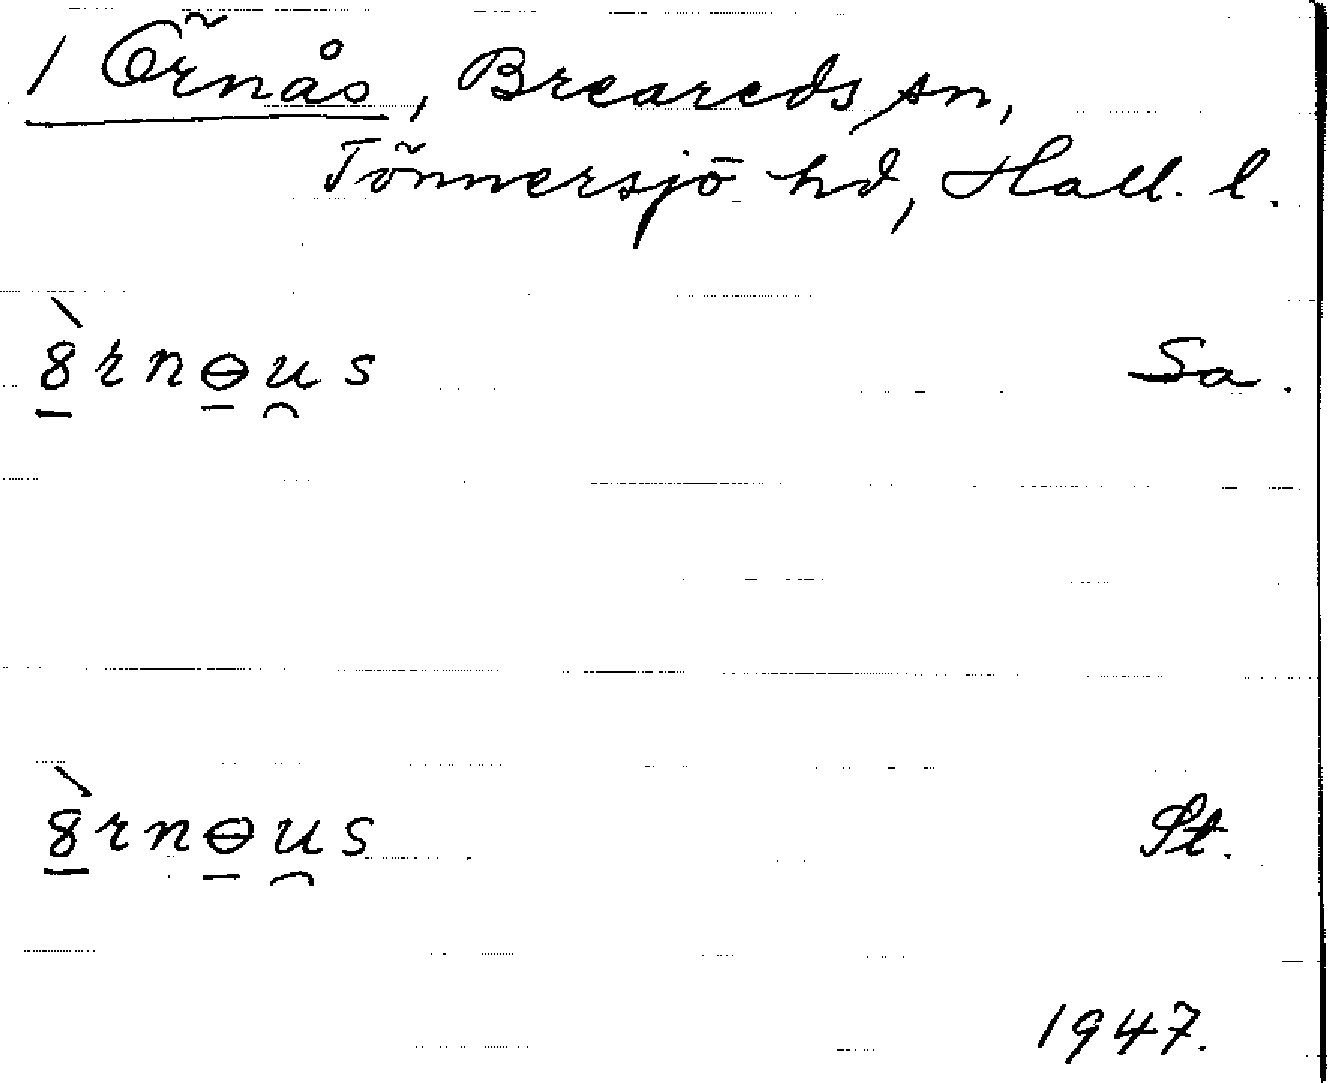 / Örnås, Breareds sn,
Tönnersjö hd, Hall. l.
8̠̀rnɵ̠u̯s Sa.
8̠̀rnɵ̠u̯s St.
1947.